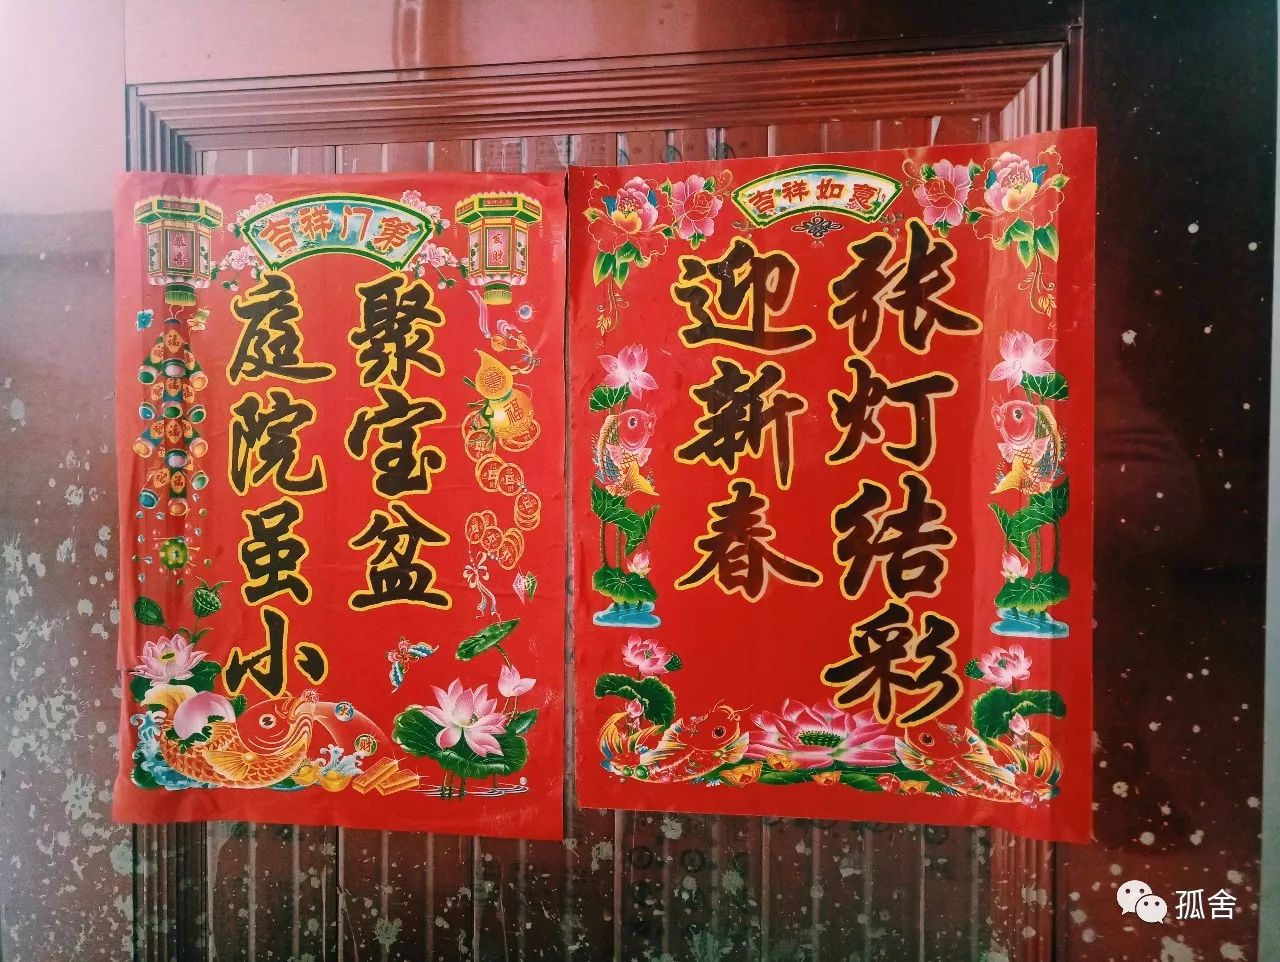 吉祥门第
恭喜
发财
聚宝盆
庭院虽小
福
吉祥如意
张灯结彩
迎新春
孤舍